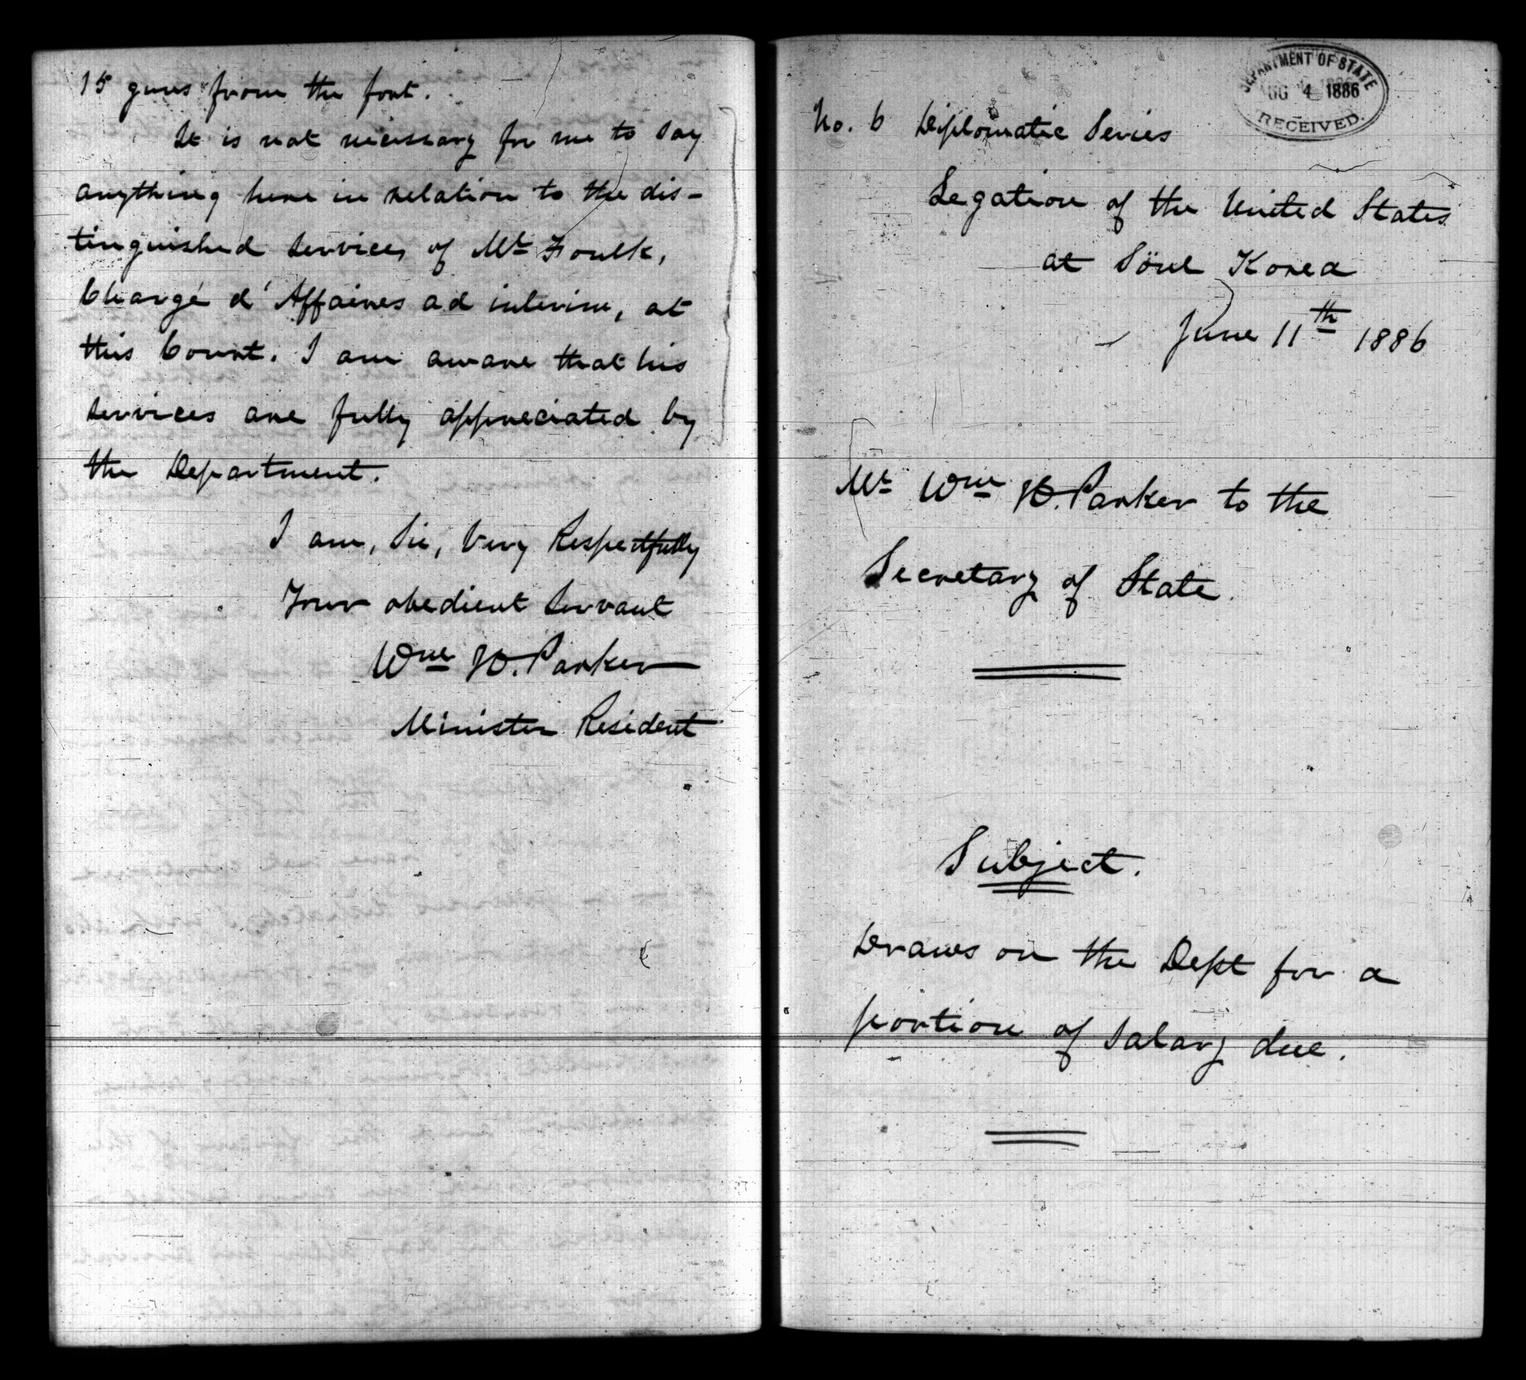 15 guns from the fort.
It is not necessary for me to say
anything here in relation to the dis-
tinguished services of Mr Foulk,
Chargé d'Affaires ad interim, at
this Court. I am aware that his
services are fully appreciated by
the Department.
I am, Sir, Very Respectfully
Your obedient servant
Wm H. Parker
Minister Resident
DEPARTMENT OF STATE
AUG 4 1886
RECEIVED.
No. 6 Diplomatic Series
Legation of the United States
at Söul Korea
June 11th 1886
Mr Wm H. Parker to the
Secretary of State.
Subject.
Draws on the Dept for a
portion of salary due.